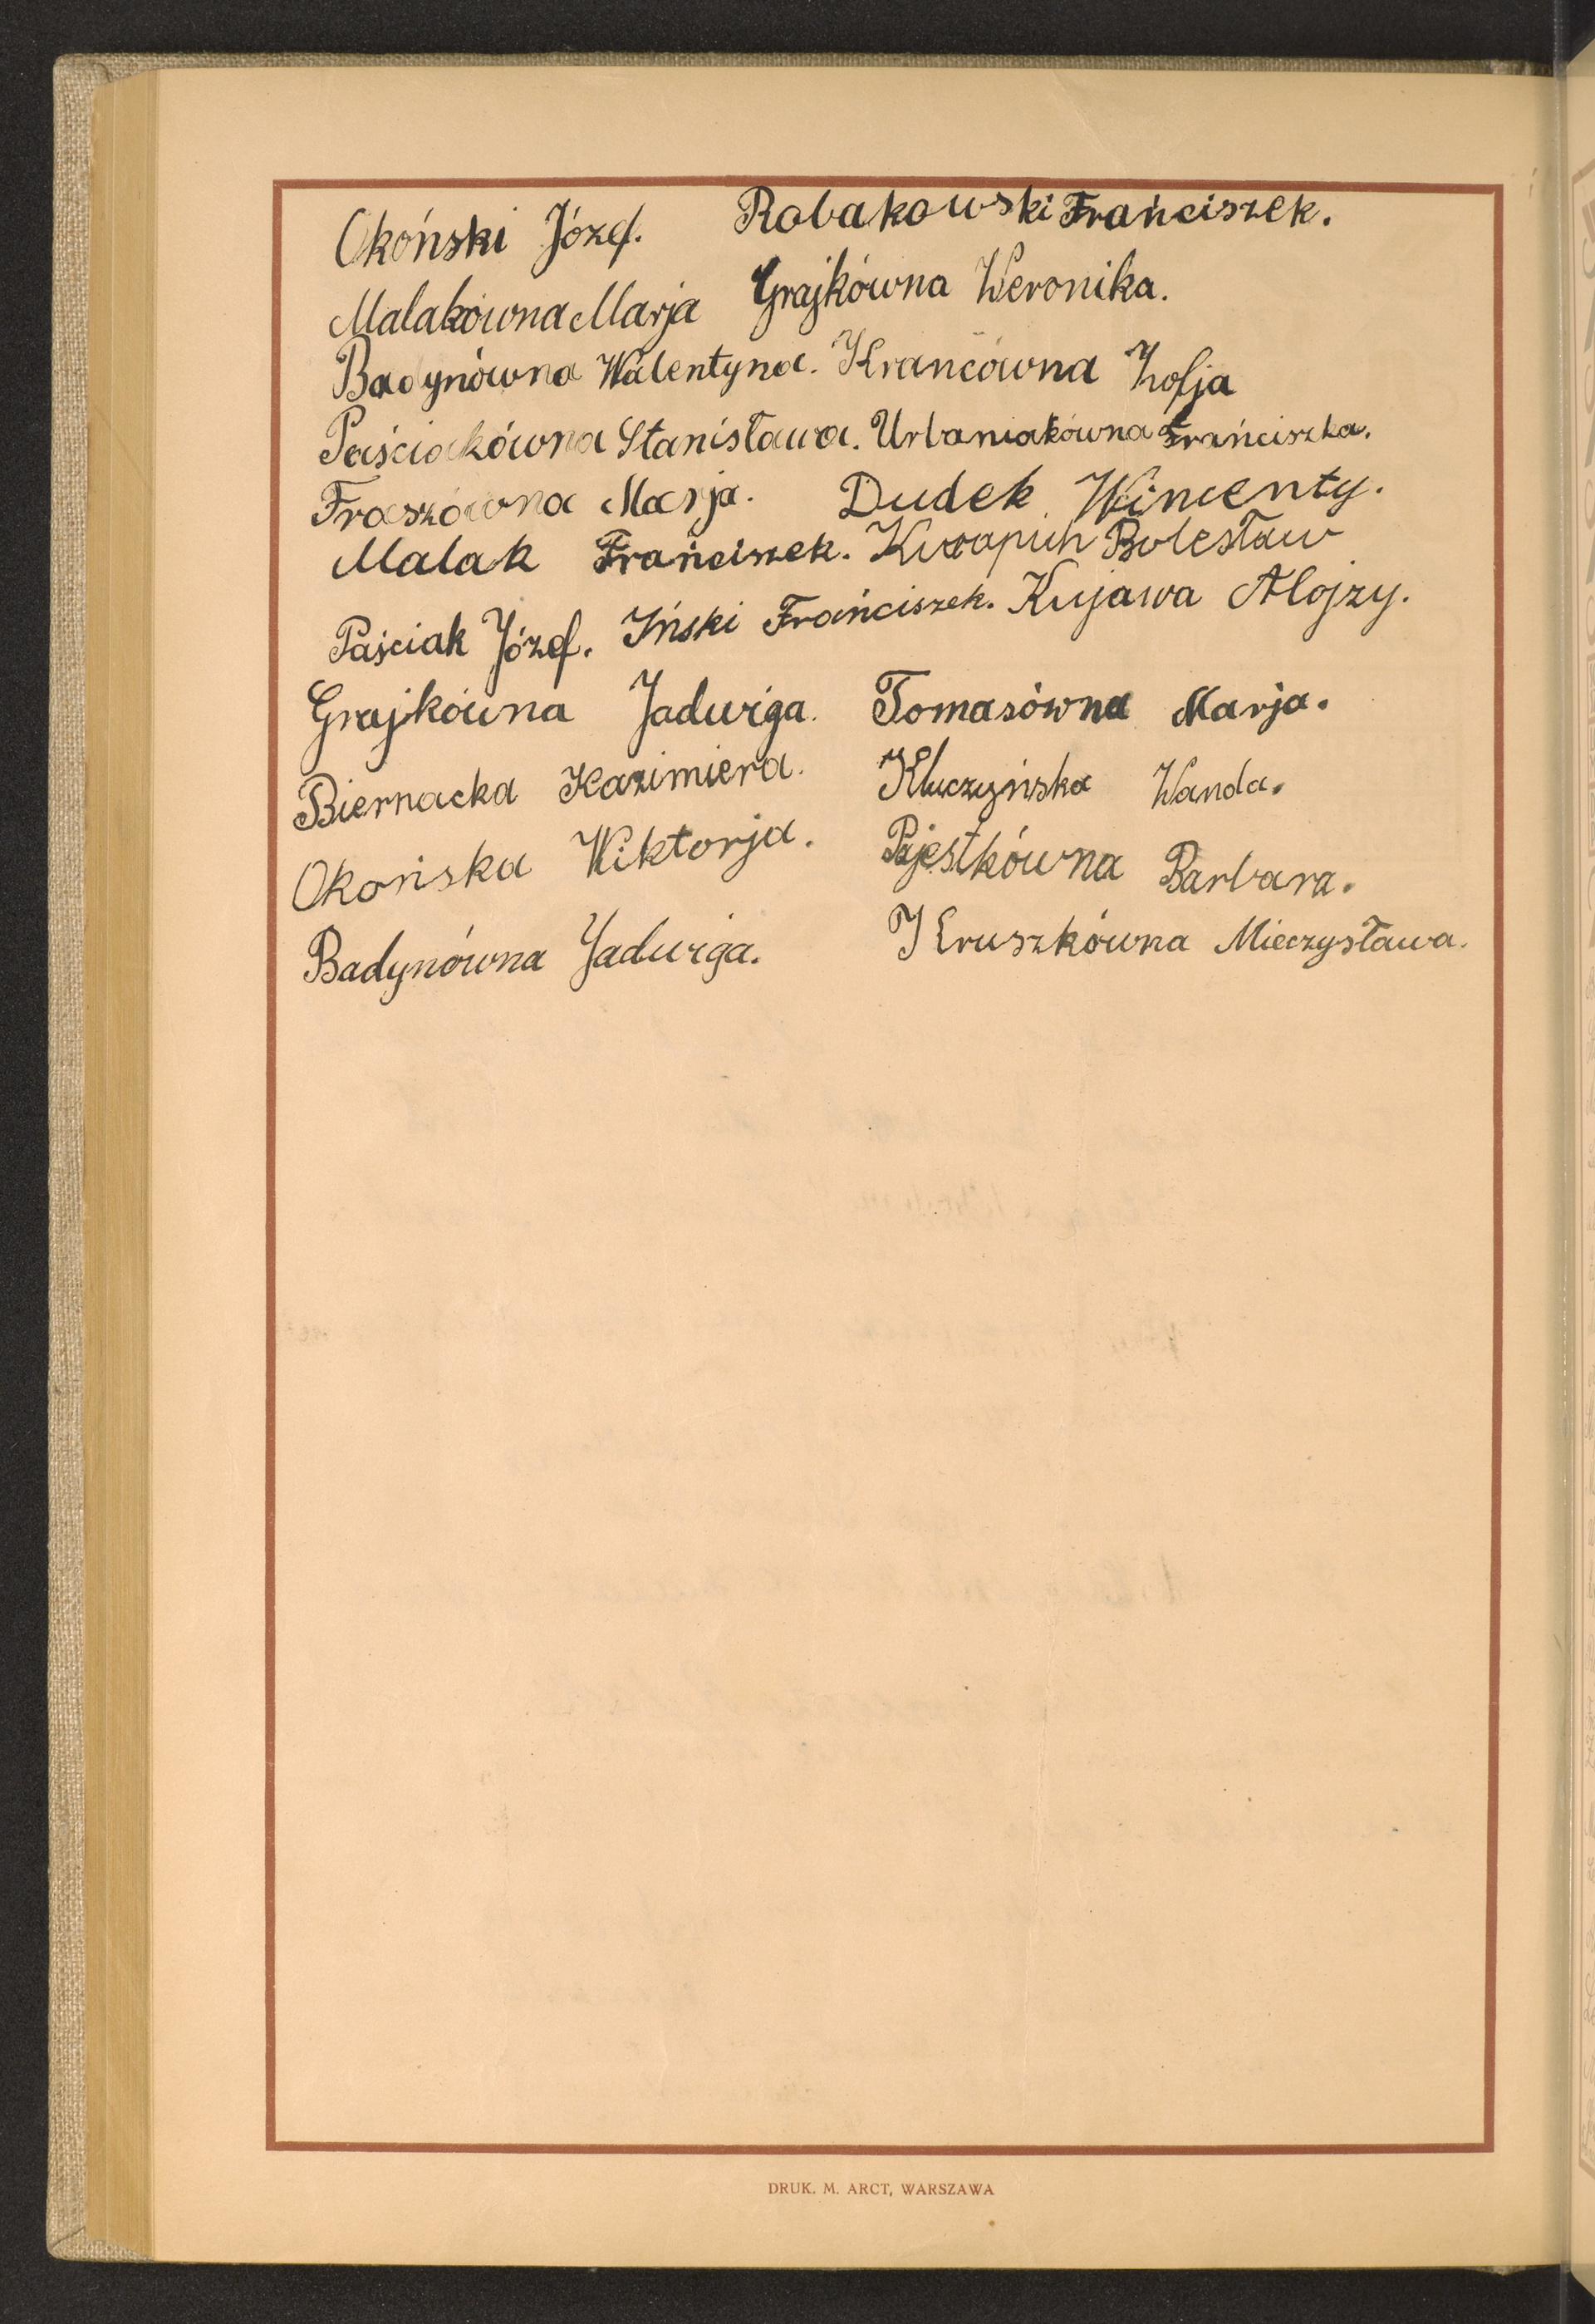 Okoński Józef. Robakowski Frańciszek.
Malakówna Marja Grajkówna Weronika.
Badynówna Walentyna. Krancówna Zofja
Paściakówna Stanisława. Urbaniakówna Frańciszka.
Fraszówna Marja. Dudek Wincenty.
Malak Frańciszek. Bolesław
Paściak Józef. Iński Frańciszek. Kujawa Alojzy.
Grajkówna Jadwiga. Tomasówna Marja.
Biernacka Kazimiera. Kluczyńska Wanda.
Okońska Wiktorja. Pajestkówna Barbara.
Badynówna Jadwiga. Kruszkówna Mieczysława.
DRUK. M. ARCT, WARSZAWA